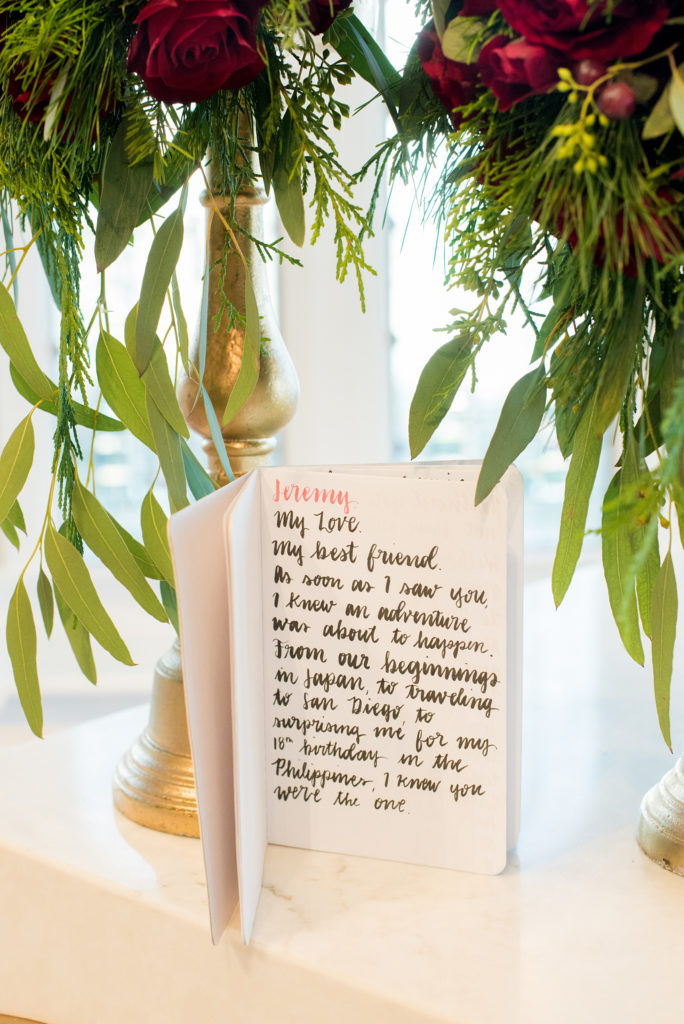 Jeremy,
My Love.
My best friend.
As soon as I saw you,
I knew an adventure
was about to happen.
From our beginnings
in Japan, to traveling
to San Diego, to
surprising me for my
18th birthday in the
Philippines, I knew you
were the one.